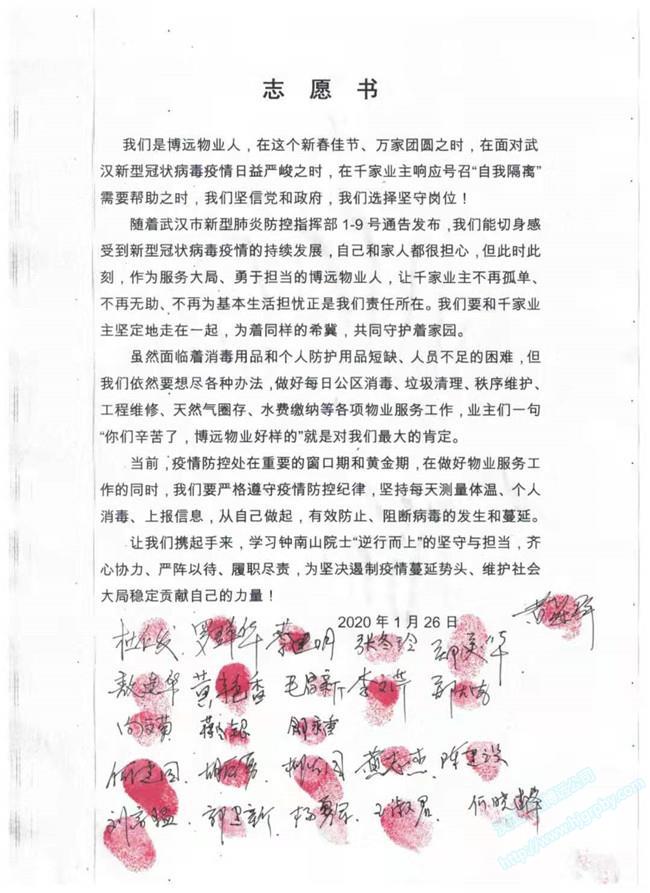 志 愿 书
我们是博远物业人，在这个新春佳节、万家团圆之时，在面对武
汉新型冠状病毒疫情日益严峻之时，在千家业主响应号召“自我隔离”
需要帮助之时，我们坚信党和政府，我们选择坚守岗位！
随着武汉市新型肺炎防控指挥部 1-9 号通告发布，我们能切身感
受到新型冠状病毒疫情的持续发展，自己和家人都很担心，但此时此
刻，作为服务大局、勇于担当的博远物业人，让千家业主不再孤单、
不再无助、不再为基本生活担忧正是我们责任所在。我们要和千家业
主坚定地走在一起，为着同样的希冀，共同守护着家园。
虽然面临着消毒用品和个人防护用品短缺、人员不足的困难，但
我们依然要想尽各种办法，做好每日公区消毒、垃圾清理、秩序维护、
工程维修、天然气圈存、水费缴纳等各项物业服务工作，业主们一句
“你们辛苦了，博远物业好样的”就是对我们最大的肯定。
当前，疫情防控处在重要的窗口期和黄金期，在做好物业服务工
作的同时，我们要严格遵守疫情防控纪律，坚持每天测量体温、个人
消毒、上报信息，从自己做起，有效防止、阻断病毒的发生和蔓延。
让我们携起手来，学习钟南山院士“逆行而上”的坚守与担当，齐
心协力、严阵以待、履职尽责，为坚决遏制疫情蔓延势头、维护社会
大局稳定贡献自己的力量！
2020 年 1 月 26 日
张冬玲
黄艳香 毛启新
黄志杰 陈建设
郭建新 王淑君
http://www.bjgrphy.com